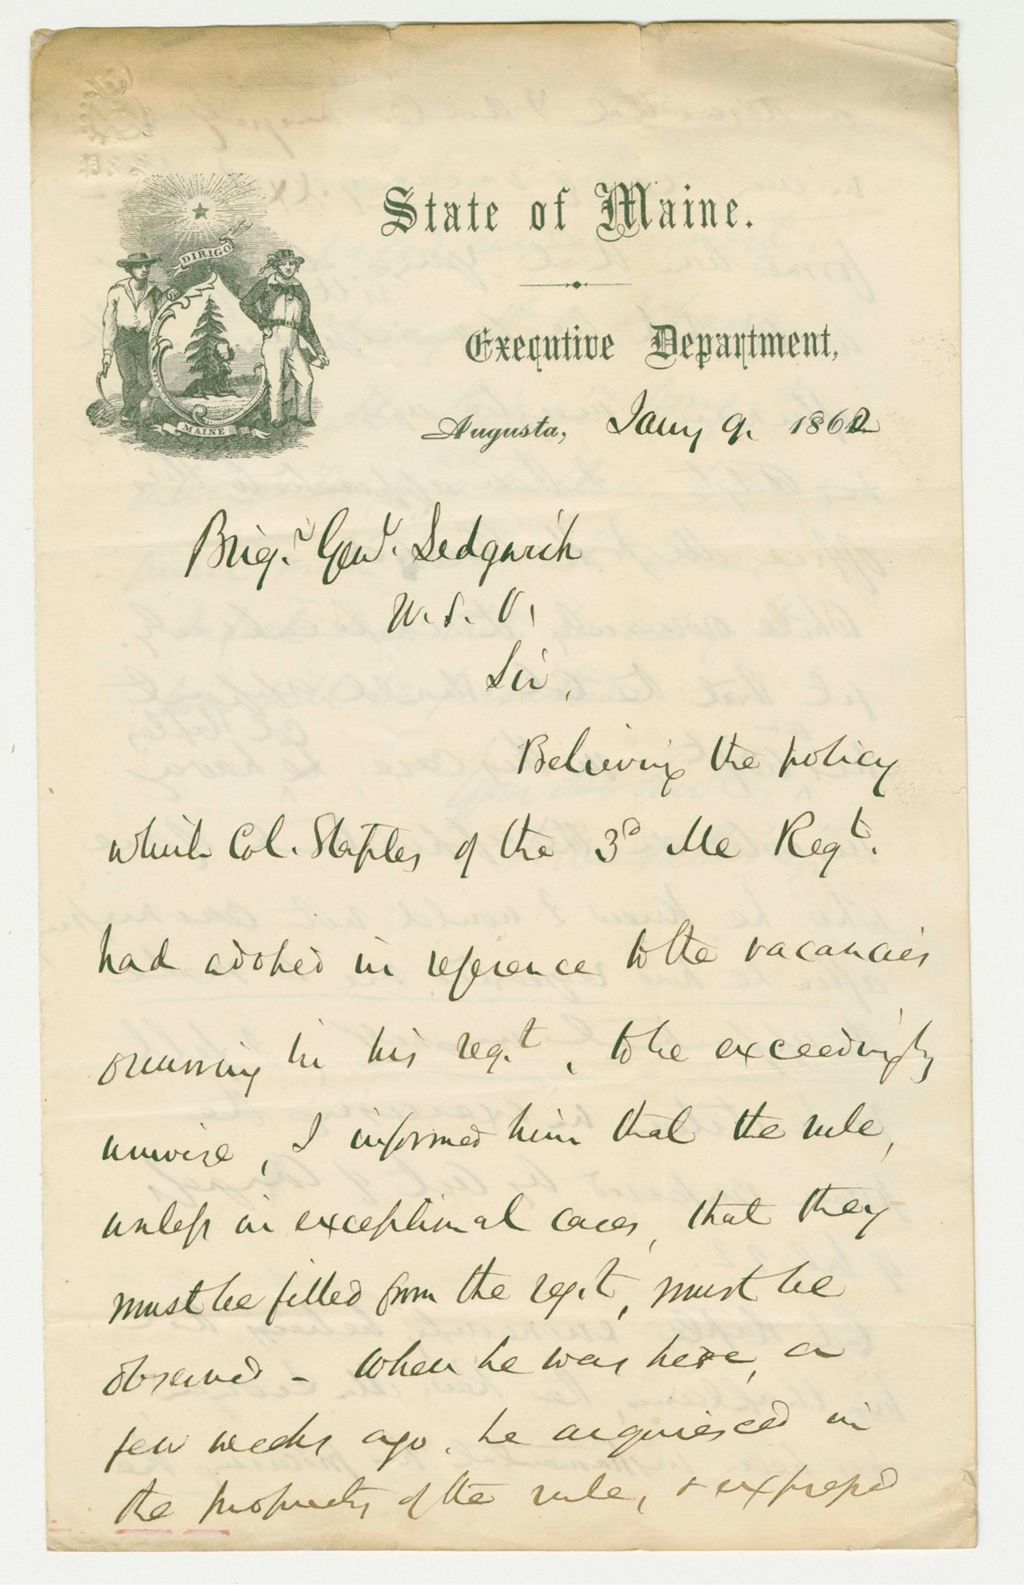 State of Maine.
Executive Department,
Augusta, Jany 9. 1862
DIRIGO
MAINE
Brigr. Genl. Sedgwick
U. S. V.
Sir,
Believing the policy
which Col. Staples of the 3d Me Regt.
had adopted in reference to the vacancies
occurring in his regt, to be exceedingly
unwise, I informed him that the rule,
unless in exceptional cases, that they
must be filled from the regt, must be
observed - When he was here, a
few weeks ago, he acquiesced in
the propriety of the rule, & expressed